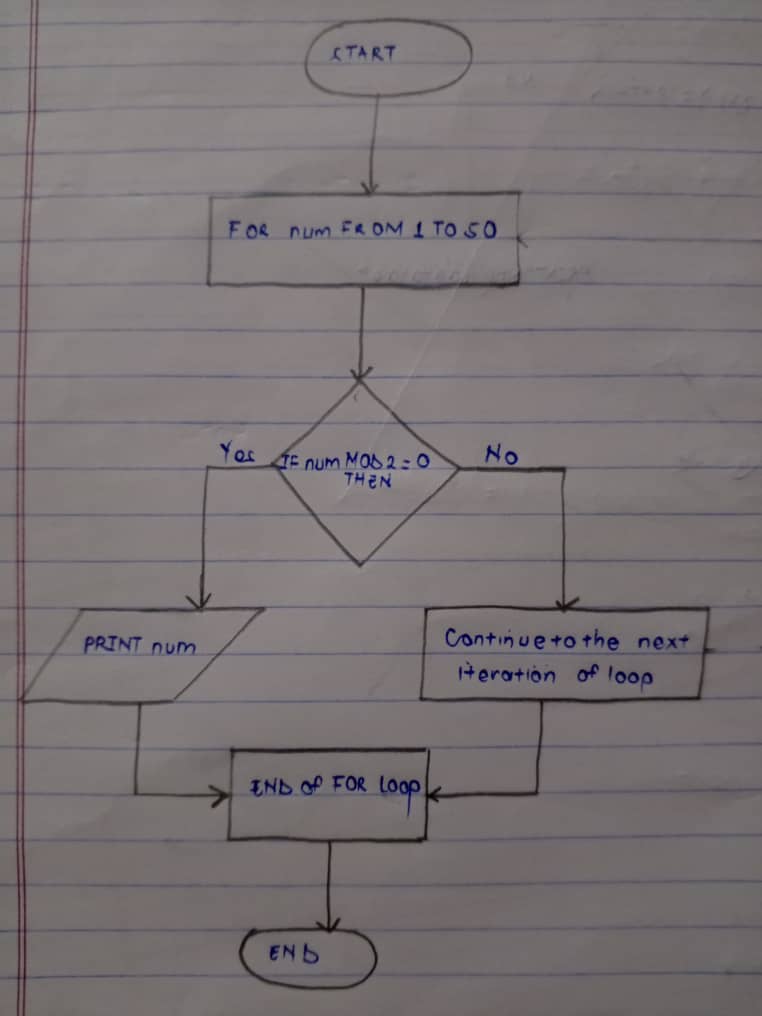 START
FOR num FROM 1 TO 50
Yes
IF num MOD 2 = 0
THEN
No
PRINT num
Continue to the next
iteration of loop
END of FOR Loop
END